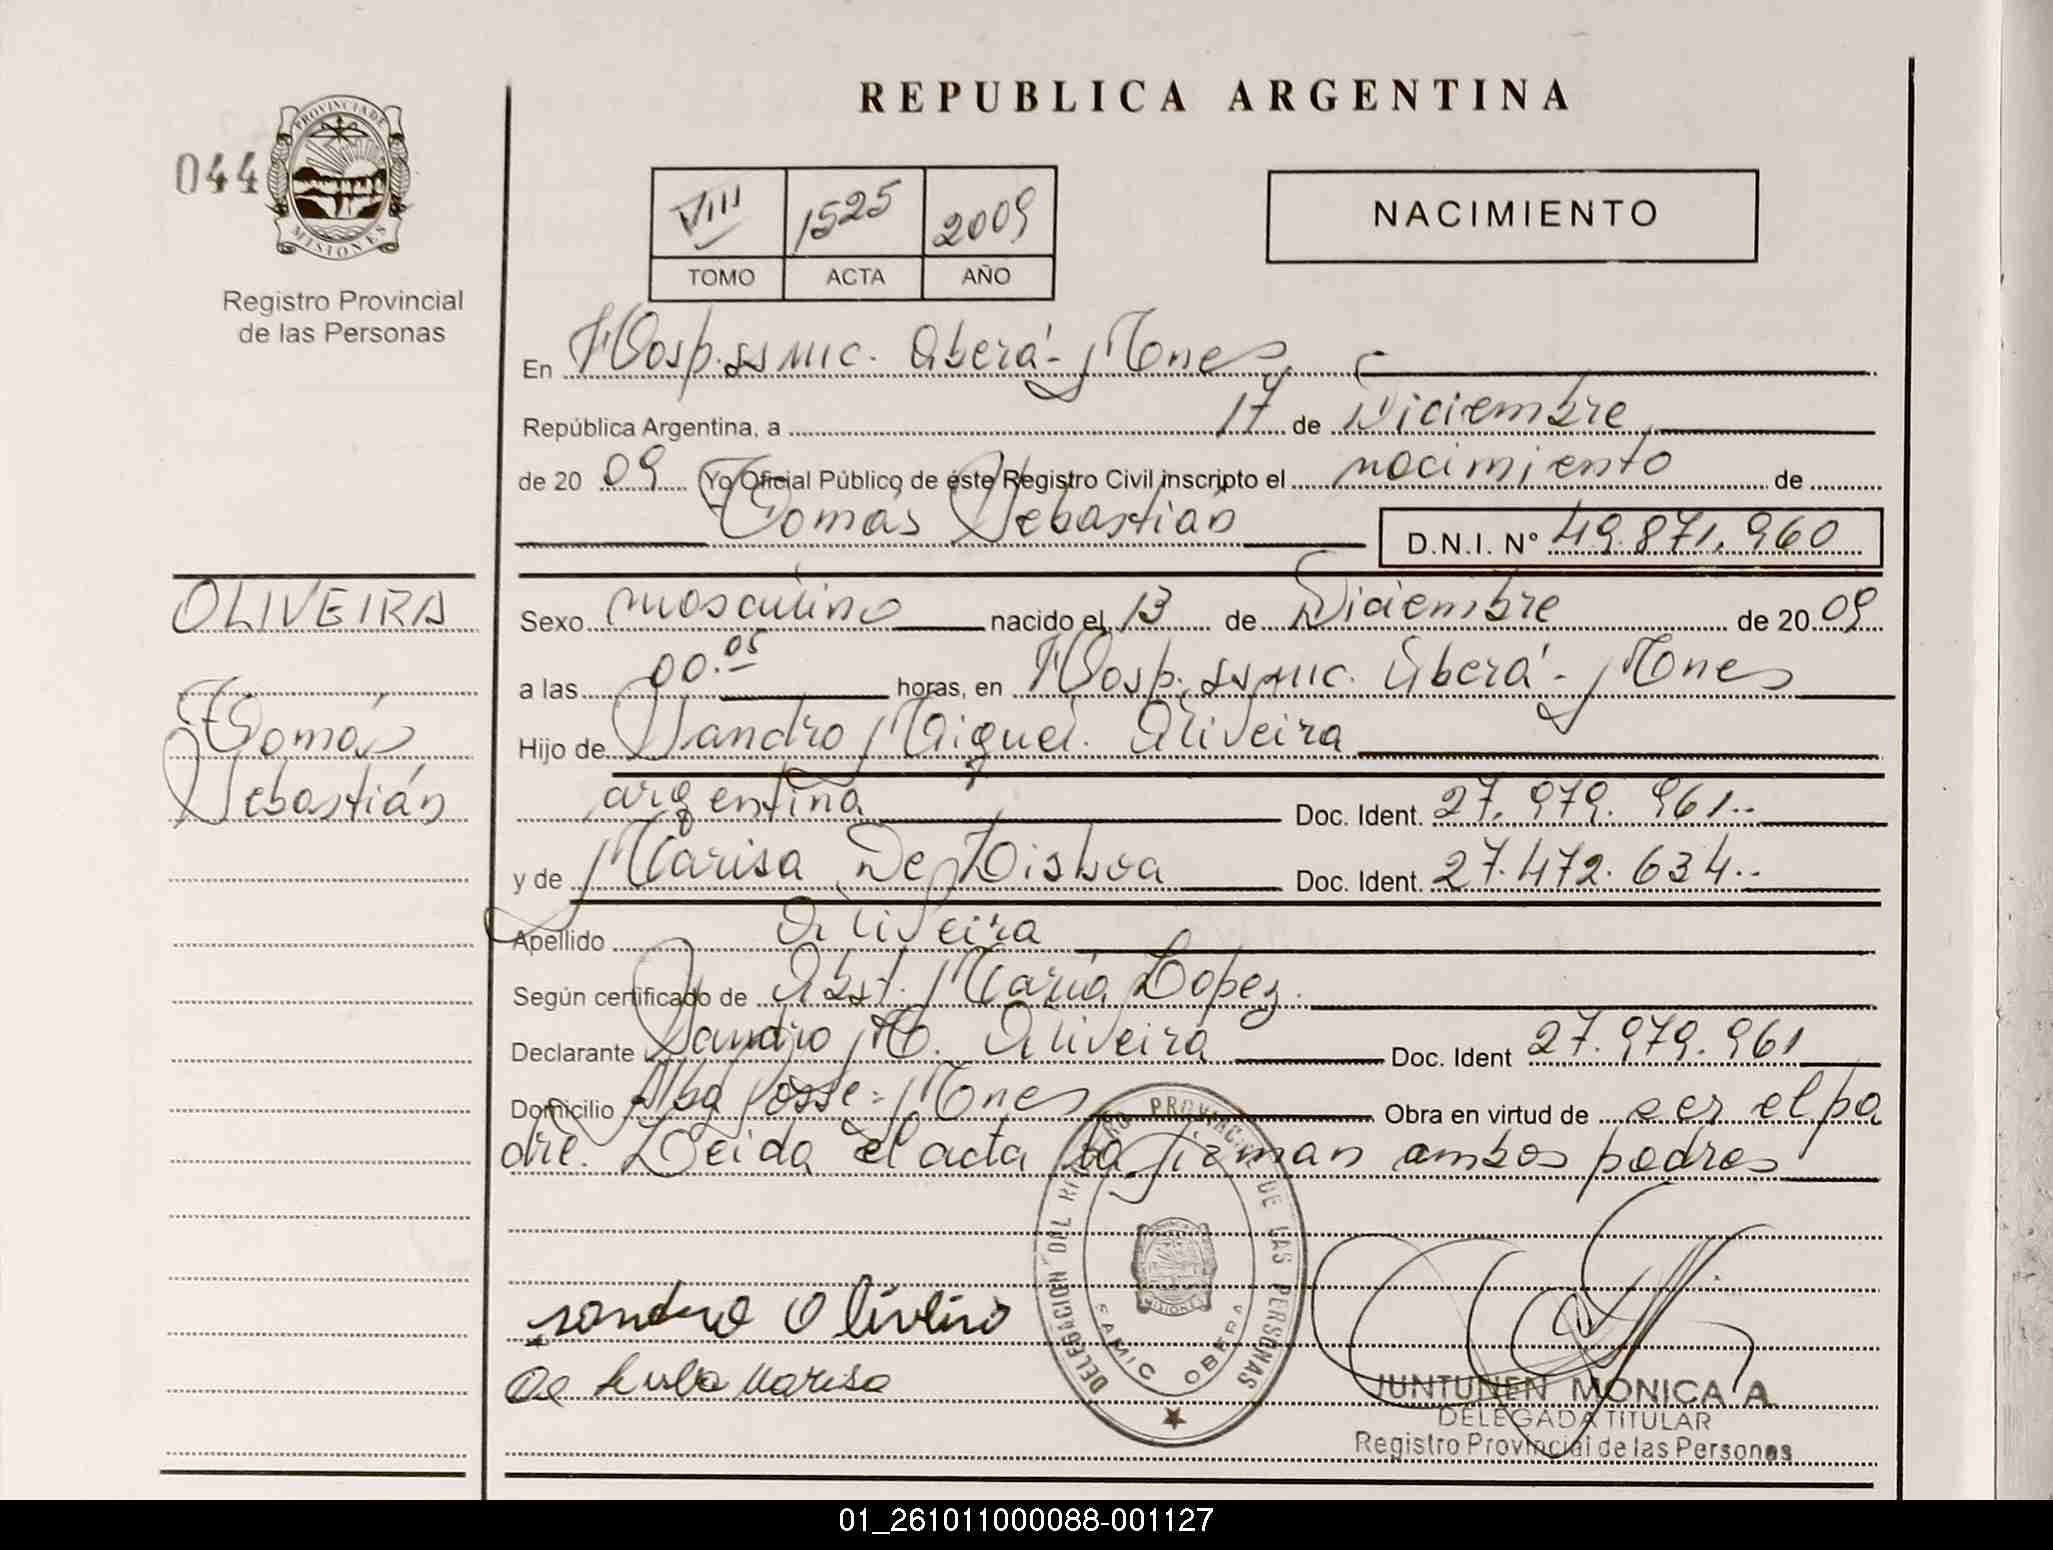 REPUBLICA ARGENTINA
044
PROVINCIA DE
MISIONES
Registro Provincial
de las Personas
VIII 1525 2009
TOMO ACTA AÑO
NACIMIENTO
En Hosp. SAMIC. Oberá - Mnes
República Argentina, a 17 de Diciembre
de 20 09 Yo Oficial Público de éste Registro Civil inscripto el nacimiento de
Tomás Sebastián D.N.I. Nº 49.871.960
OLIVEIRA
Tomás
Sebastián
Sexo masculino nacido el 13 de Diciembre de 20 09
a las 00.05 horas, en Hosp. SAMIC. Oberá - Mnes
Hijo de Sandro Miguel Oliveira
argentina Doc. Ident. 27.979.961..
y de Marisa De Lisboa Doc. Ident. 27.472.634..
Apellido Oliveira
Según certificado de Obst. María Lopez.
Declarante Sandro M. Oliveira Doc. Ident 27.979.961
Domicilio Alba Posse - Mnes Obra en virtud de ser el pa
dre. Leida el acta la firman ambos padres
DELEGACION DEL REGISTRO PROVINCIAL DE LAS PERSONAS
MISIONES
SAMIC OBERA
Sandro Oliveira
De Marisa
JUNTUNEN MONICA A
DELEGADA TITULAR
Registro Provincial de las Personas
01_261011000088-001127